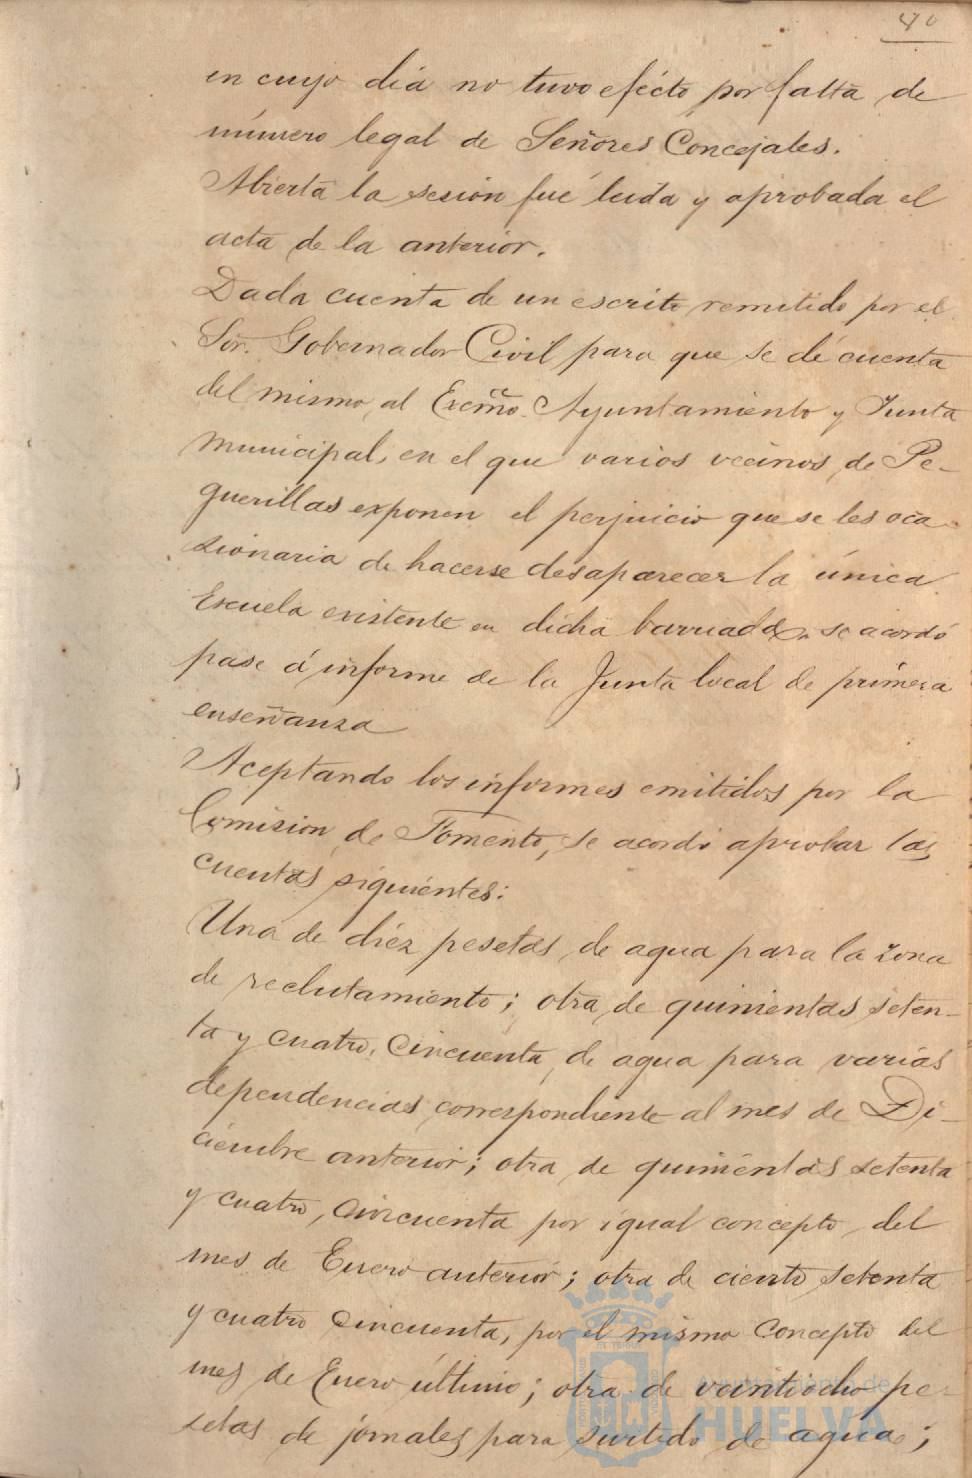 40
en cuyo dia no tuvo efécto por falta de
número legal de Señores Concejales.
Abierta la sesión fué leida y aprobada el
acta de la anterior.
Dada cuenta de un escrito remitido por el
Sór. Gobernador Civil para que se dé cuenta
del mismo al Excmo. Ayuntamiento y Junta
municipal, en el que varios vecinos de Pe-
guerillas exponen el perjuicio que se les oca
sionaria de hacerse desaparecer la única
Escuela existente en dicha barriada, se acordó
pase á informe de la Junta local de primera
enseñanza
Aceptando los informes emitidos por la
Comision de Fomento, se acordó aprobar las
cuentas siguientes:
Una de diez pesetas de agua para la zona
de reclutamiento; otra de quinientas seten-
ta y cuatro, cincuenta, de agua para varias
dependencias correspondiente al mes de Di-
ciembre anterior; otra de quinientas setenta
y cuatro, cincuenta por igual concepto del
mes de Enero anterior; otra de ciento setenta
y cuatro cincuenta, por el mismo concepto del
mes de Enero último; otra de veintiocho pe-
setas de jornales para surtido de aguas;
Ayuntamiento de
HUELVA